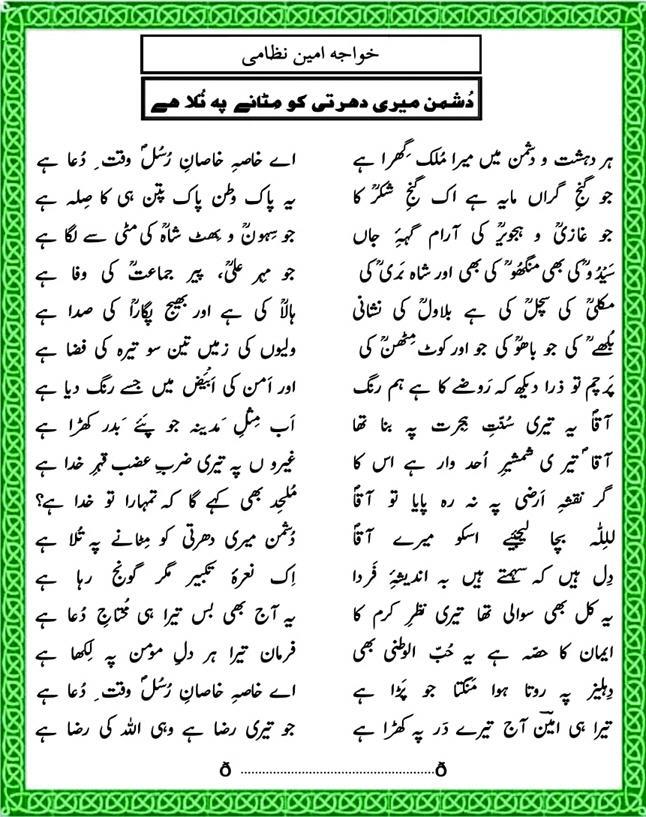 خواجہ امین نظامی
دُشمن میری دھرتی کو مِٹانے پہ تُلا ھے
ہر دہشت و دشمن میں میرا مُلک گِھرا ہے اے خاصہِ خاصانِ رُسُلؐ وقت ِ دُعا ہے
جو گنجِ گراں مایہ ہے اک گنجِ شکرؒ کا یہ پاک وطن پاک پتن ہی کا صِلہ ہے
جو غازیؒ و ہجویرؒ کی آرام گہہِ جاں جو سِہونؒ و بِھٹ شاہؒ کی مٹی سے لگا ہے
سَیْدُوؒ کی بھی منگھوؒ کی بھی اور شاہ بَریؒ کی جو مِہر علیؒ، پیر جماعتؒ کی وفا ہے
مکلیؒ کی سچلؒ کی ہے بلاولؒ کی نشانی ہالاؒ کی ہے اور بھیج پگاراؒ کی صدا ہے
بُلھےؒ کی جو باھُوؒ کی جو اور کوٹ مِٹھنؒ کی ولیوں کی زمیں تین سو تیرہ کی فضا ہے
پَرچم تو ذرا دیکھ کہ رَوضے کا ہے ہم رنگ اور اَمن کی اَبیَض میں جسے رنگ دیا ہے
آقاؐ یہ تیری سُنّتِ ہِجرت پہ بنا تھا اَب مِثلِ مَدینہ جو پَئے بَدر کھڑا ہے
آقاؐ تیر ی شمشیرِ اُحد وار ہے اس کا غیرو ں پہ تیری ضربِ عضب قہرِ خدا ہے
گر نقشہِ اَرضی پہ نہ رہ پایا تو آقاؐ مُلحِد بھی کہے گا کہ تمہارا تو خدا ہے؟
لِلّٰہ بچا لیجیئے اسکو میرے آقاؐ دُشمن میری دھرتی کو مِٹانے پہ تُلا ہے
دِل ہیں کہ سہمتے ہیں بہ اندیشۂِ فَردا اِک نعرۂِ تکبیر مگر گونج رہا ہے
یہ کل بھی سوالی تھا تیری نظرِ کرم کا یہ آج بھی بس تیرا ہی مُحتاجِ دُعا ہے
ایمان کا حصّہ ہے یہ حُبّ الوطنی بھی فرمان تیرا ہر دلِ مؤمن پہ لِکھا ہے
دِہلیز پہ روتا ہوا مَنگتا جو پَڑا ہے اے خاصہِ خاصانِ رُسُلؐ وقت ِ دُعا ہے
تیرا ہی امیؔن آج تیرے دَر پہ کھڑا ہے جو تیری رضا ہے وہی اللہ کی رضا ہے
ð ..................................................ð